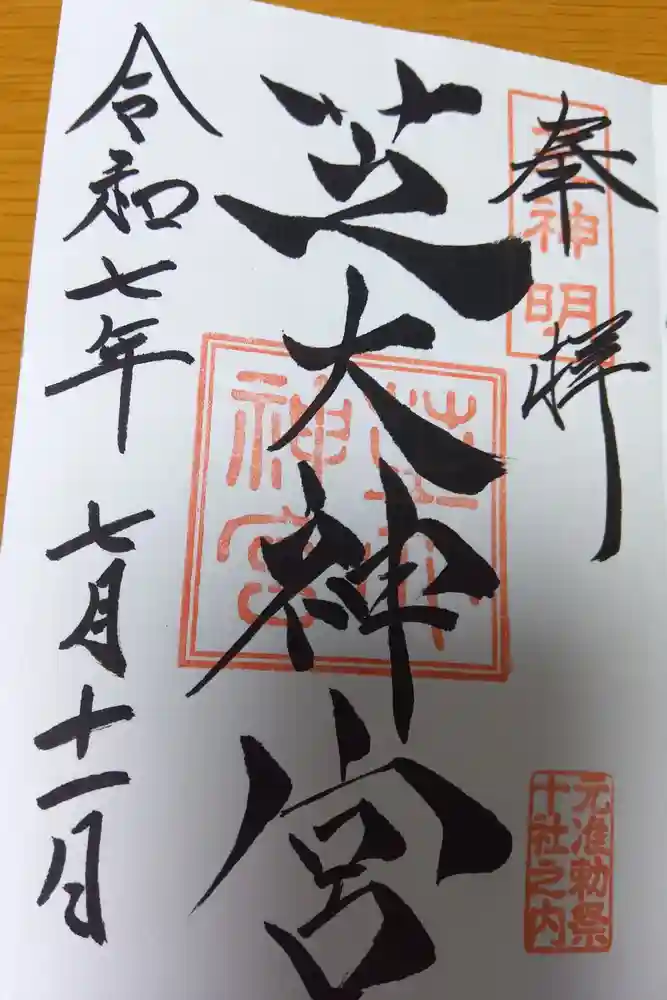 奉拝
神明
芝大神宮
神宮
元准勅祭
十社之内
令和七年 七月十一日